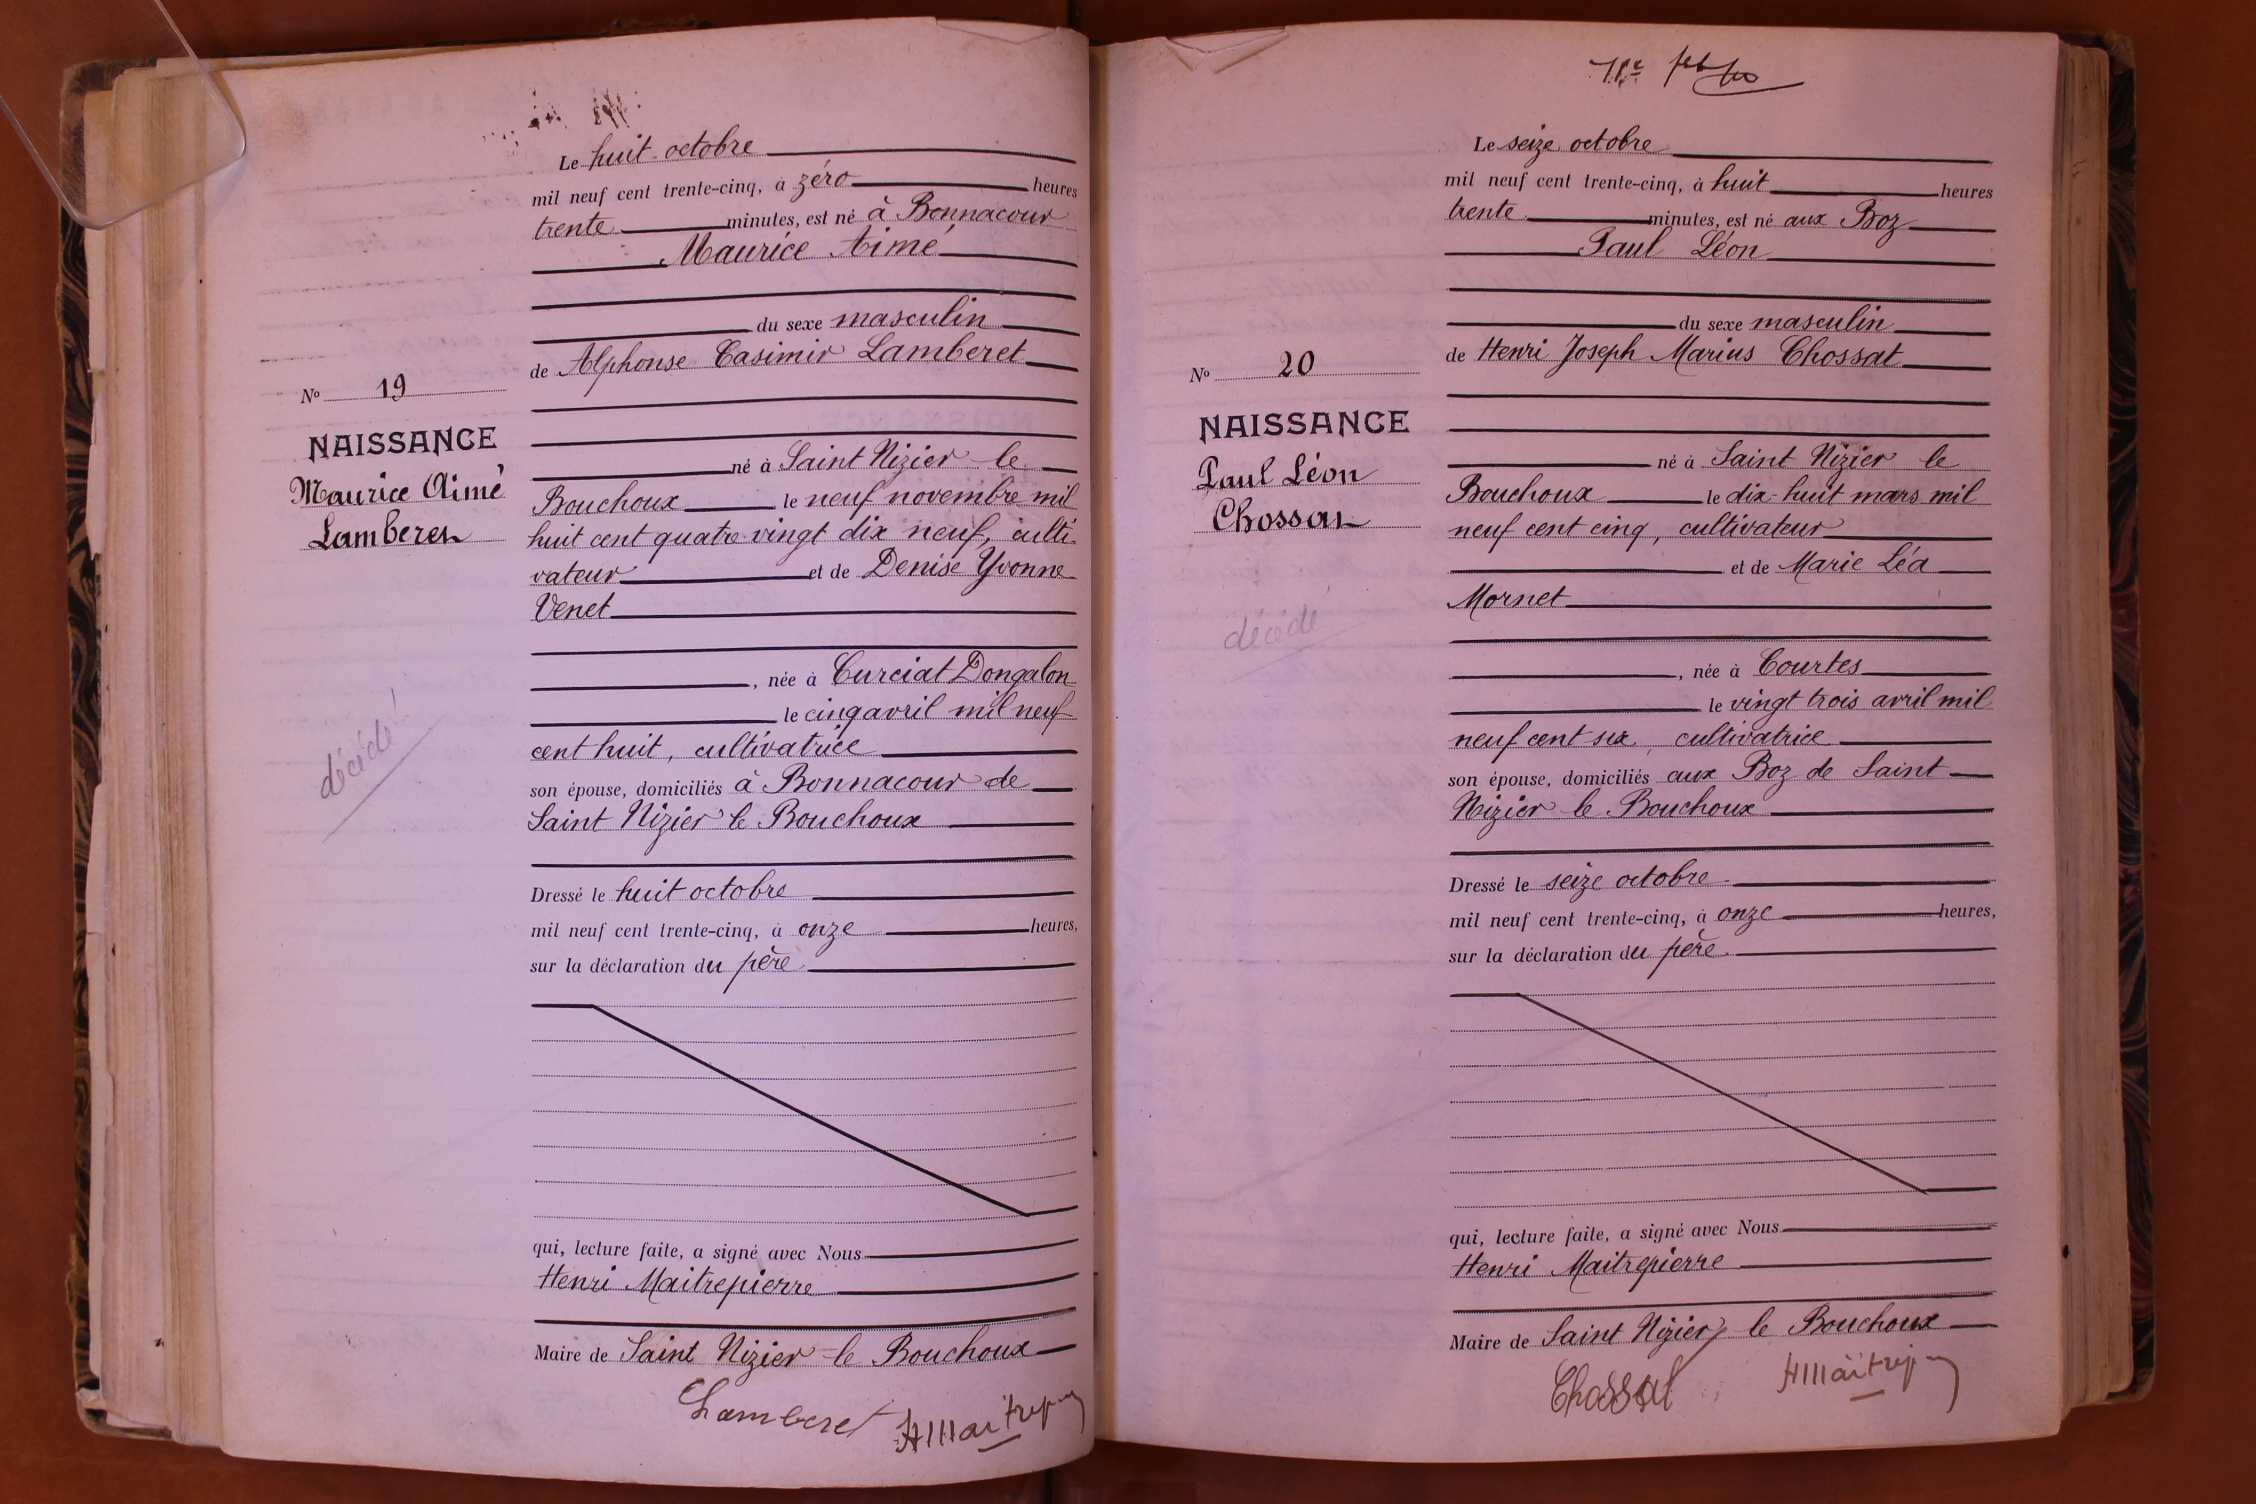 Le huit octobre
mil neuf cent trente-cinq, à zéro heures
trente minutes, est né à Bonnacour
Maurice Aimé
du sexe masculin
de Alphonse Casimir Lamberet
né à Saint Nizier le
Bouchoux le neuf novembre mil
huit cent quatre vingt dix neuf, culti-
vateur et de Denise Yvonne
Venet
, née à Curciat Dongalon
le cinq avril mil neuf
cent huit, cultivatrice
son épouse, domiciliés à Bonnacour de
Saint Nizier le Bouchoux
Dressé le huit octobre
mil neuf cent trente-cinq, à onze heures,
sur la déclaration du père
qui, lecture faite, a signé avec Nous
Henri Maitrepierre
Maire de Saint Nizier le Bouchoux
Lamberet HMaitrep
No 19
NAISSANCE
Maurice Aimé
Lamberet
décédé
Le seize octobre
mil neuf cent trente-cinq, à huit heures
trente minutes, est né aux Boz
Paul Léon
du sexe masculin
de Henri Joseph Marius Chossat
né à Saint Nizier le
Bouchoux le dix-huit mars mil
neuf cent cinq, cultivateur
et de Marie Léa
Mornet
, née à Courtes
le vingt trois avril mil
neuf cent six, cultivatrice
son épouse, domiciliés aux Boz de Saint
Nizier le Bouchoux
Dressé le seize octobre
mil neuf cent trente-cinq, à onze heures,
sur la déclaration du père
qui, lecture faite, a signé avec Nous
Henri Maitrepierre
Maire de Saint Nizier le Bouchoux
Chossat HMaitrep
No 20
NAISSANCE
Paul Léon
Chossat
décédé